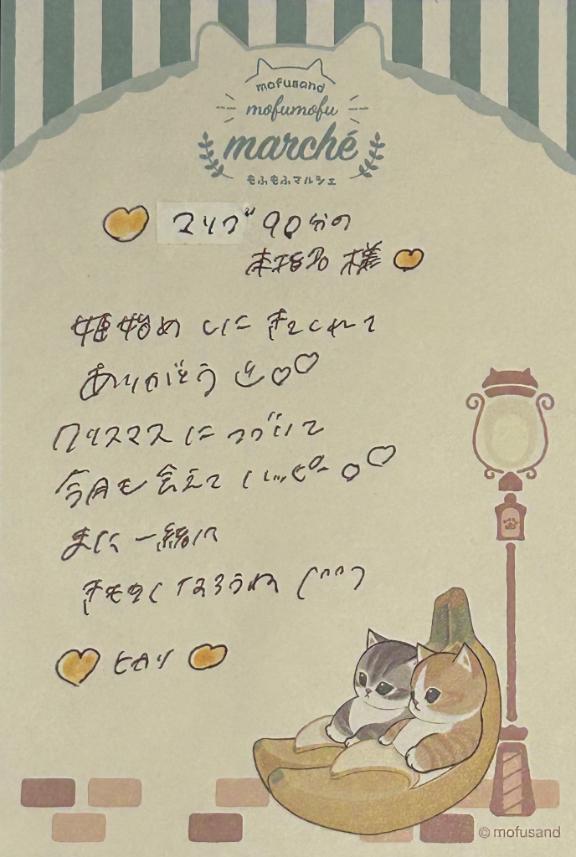 mofusand
mofumofu
marché
もふもふマルシェ
マリブ 90分の
本指名 様
姫始め しにきてくれて
ありがとう
クリスマスにつづいて
今月も会えてハッピー
また一緒に
きもちくなろうね (^^)
ヒカリ
© mofusand